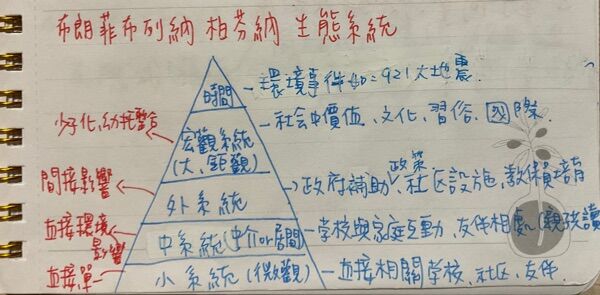 布朗菲布列納 柏芬納 生態系統
時間 - 環境事件如:921大地震.
少子化,幼托整合 宏觀系統 - 社会中價值、文化、習俗、國際.
(大、鉅觀)
政策
間接影響 外系統 政府補助、社区設施,教保員培育
直接環境影響 中系統(中介or居間) - 学校與家庭互動 友伴相處(親孩讀
直接單一 小系統(微觀) - 直接相關学校、社区、友伴.